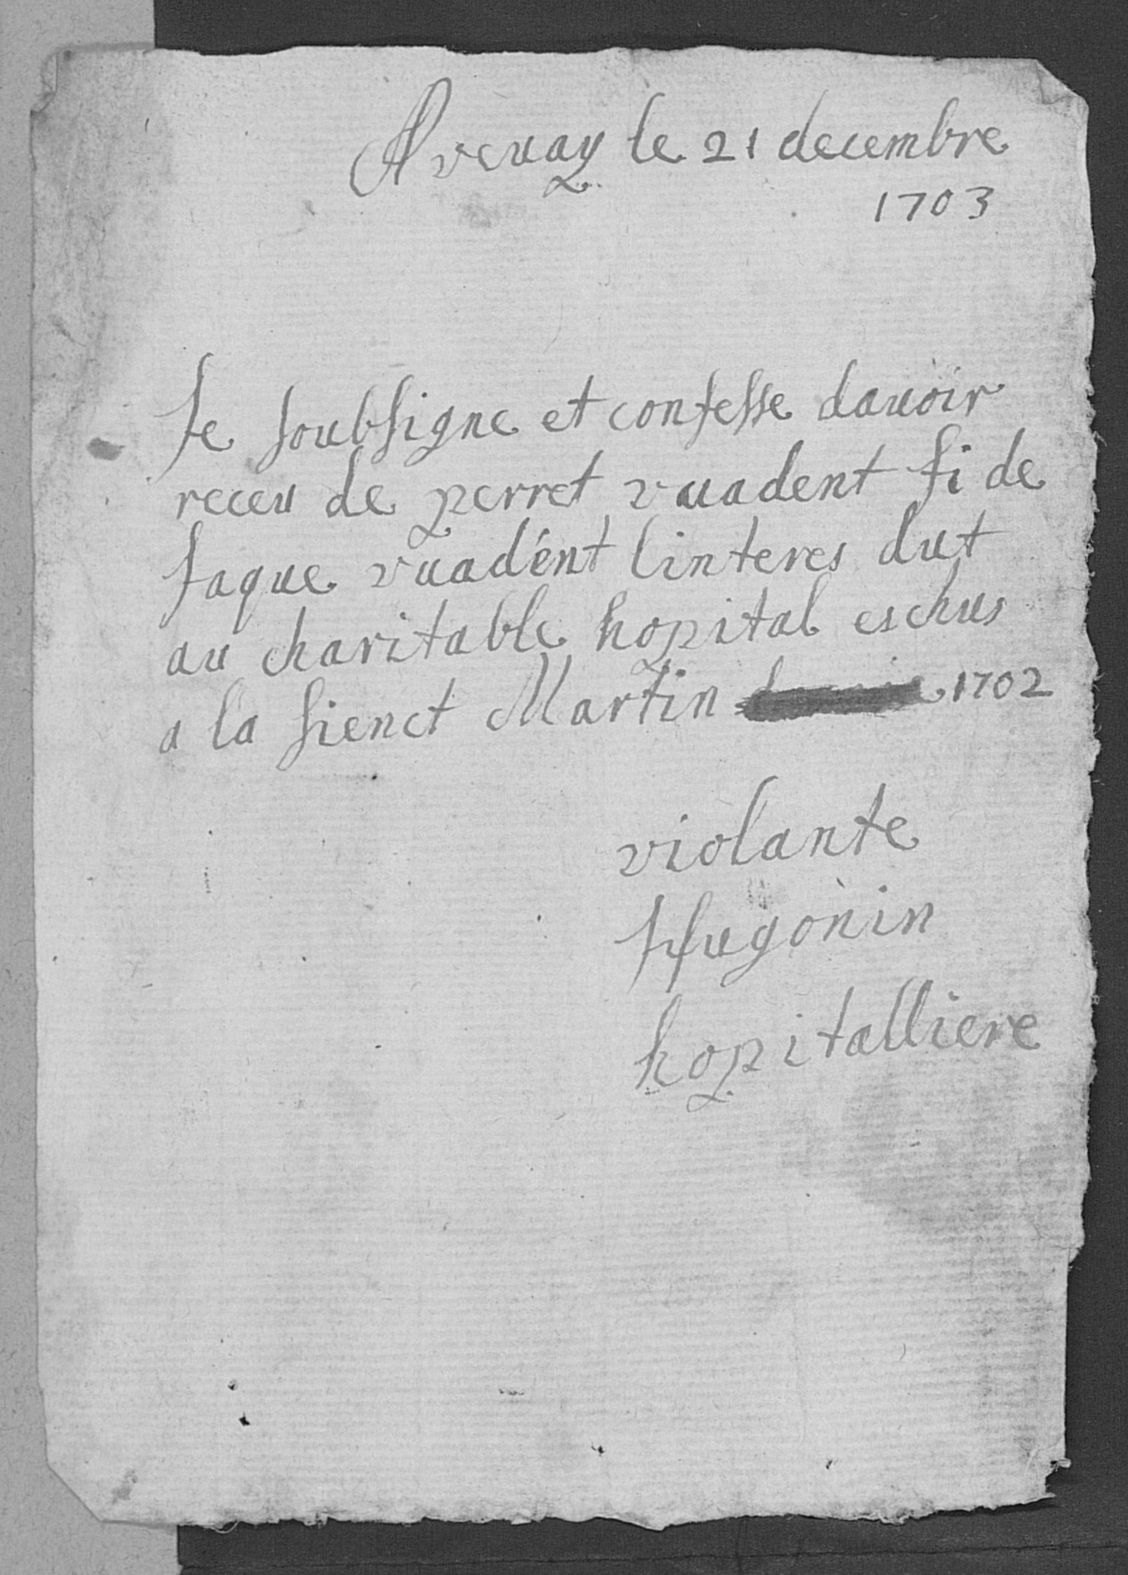 A vevay le 21 decembre
1703
Je soubsigne et confesse dauoir
receu de perret vuadent fi de
Jaque vuadent linteres dut
au charitable hopital eschus
a la sienct Martin 1702
violante
Hugonin
hopitalliere